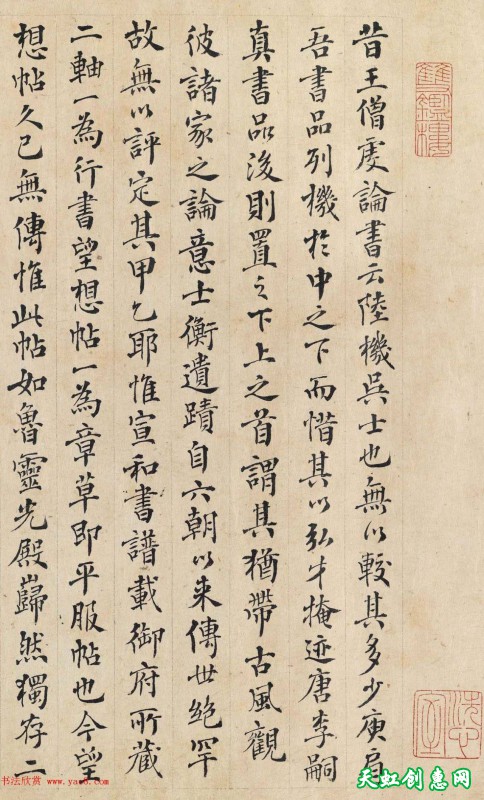 昔王僧虔論書云陸機吳士也無以較其多少庾肩
吾書品列機於中之下而惜其以弘才掩迹唐李嗣
真書品後則置之下上之首謂其猶帶古風觀
彼諸家之論意士衡遺蹟自六朝以来傳世絶罕
故無以評定其甲乙耶惟宣和書譜載御府所藏
二軸一為行書望想帖一為章草即平服帖也今望
想帖久已無傳惟此帖如魯靈光殿巋然獨存二
雙鑑樓
书法欣赏 www.yac8.com
天虹创惠网